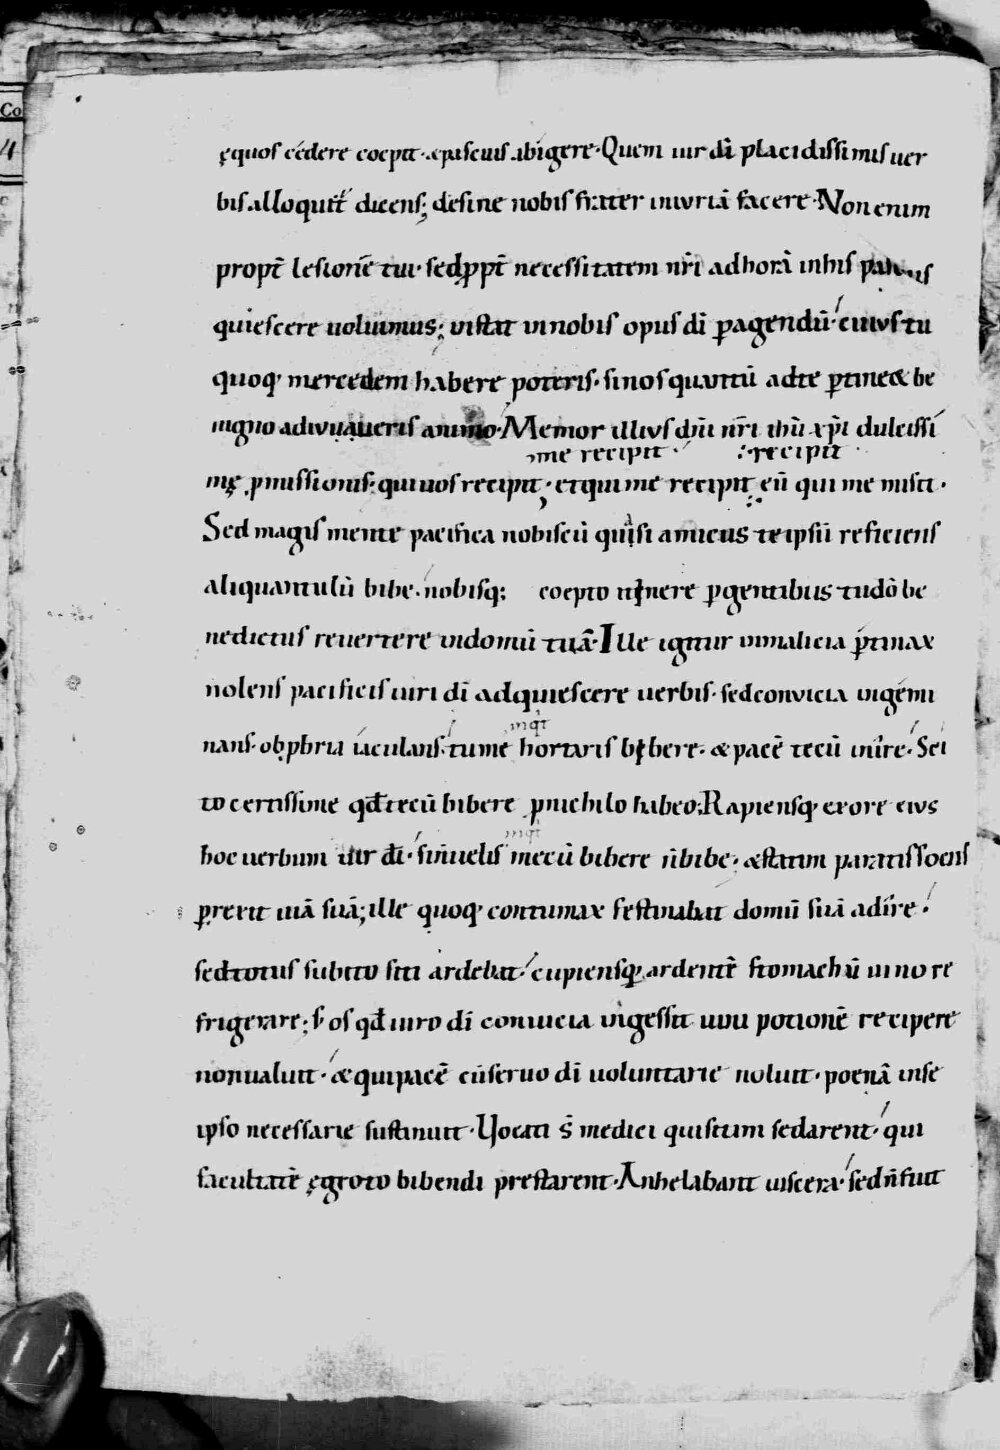 ęquos cędere coepit · & pascuis abigere · Quem uir dī placidissimis uer
bis alloquit̄ dicens; desine nobis frater iniuriā facere · Non enim
propt̄ lesionē tui · sed ꝓpt̄ necessitatem nr̄i ad horā in his pascuis
quiescere uoluimus; instat in nobis opus dī ꝑagendū · cuius tu
quoq; mercedem habere poteris · si nos quantū ad te ꝑtin& be
nigno adiuuaueris animo · Memor illius dn̄i nr̄i ihū xp̄i dulcissi
me recipit · recipit
mę ꝓmissionis: qui uos recipit · et qui me recipit eū qui me misit ·
Sed magis mente pacifica nobiscū quasi amicus te ipsū reficiens
aliquantulū bibe · nobisq; coepto itinere ꝑgentibus tu dō be
nedictus reuertere in domū tuā · Ille igitur in malicia ꝑtinax
nolens pacificis uiri dī adquiescere uerbis · sed conuicia ingemi
inqt
nans · obꝓbria iaculans · tu me hortaris bibere · & pacē tecū inire · Sci
to certissime qđ tecū bibere ꝓ nichilo habeo: Rapiensq; ex ore eius
inqt
hoc uerbum uir dī · si n̄ uelis mecū bibere n̄ bibe · & statim paratis suis
ꝑrexit uiā suā; ille quoq; contumax festinabat domū suā adire ·
sed totus subito siti ardebat · cupiensq; ardentē stomachū uino re
frigerare; s; os qđ uiro dī conuicia ingessit uini potionē recipere
non ualuit · & qui pacē cū seruo dī uoluntarie noluit · poenā in se
ipso necessarie sustinuit · Vocati s̄ medici qui sitim sedarent · qui
facultatē ęgroto bibendi prestarent · Anhelabant uiscera · sed n̄ fuit